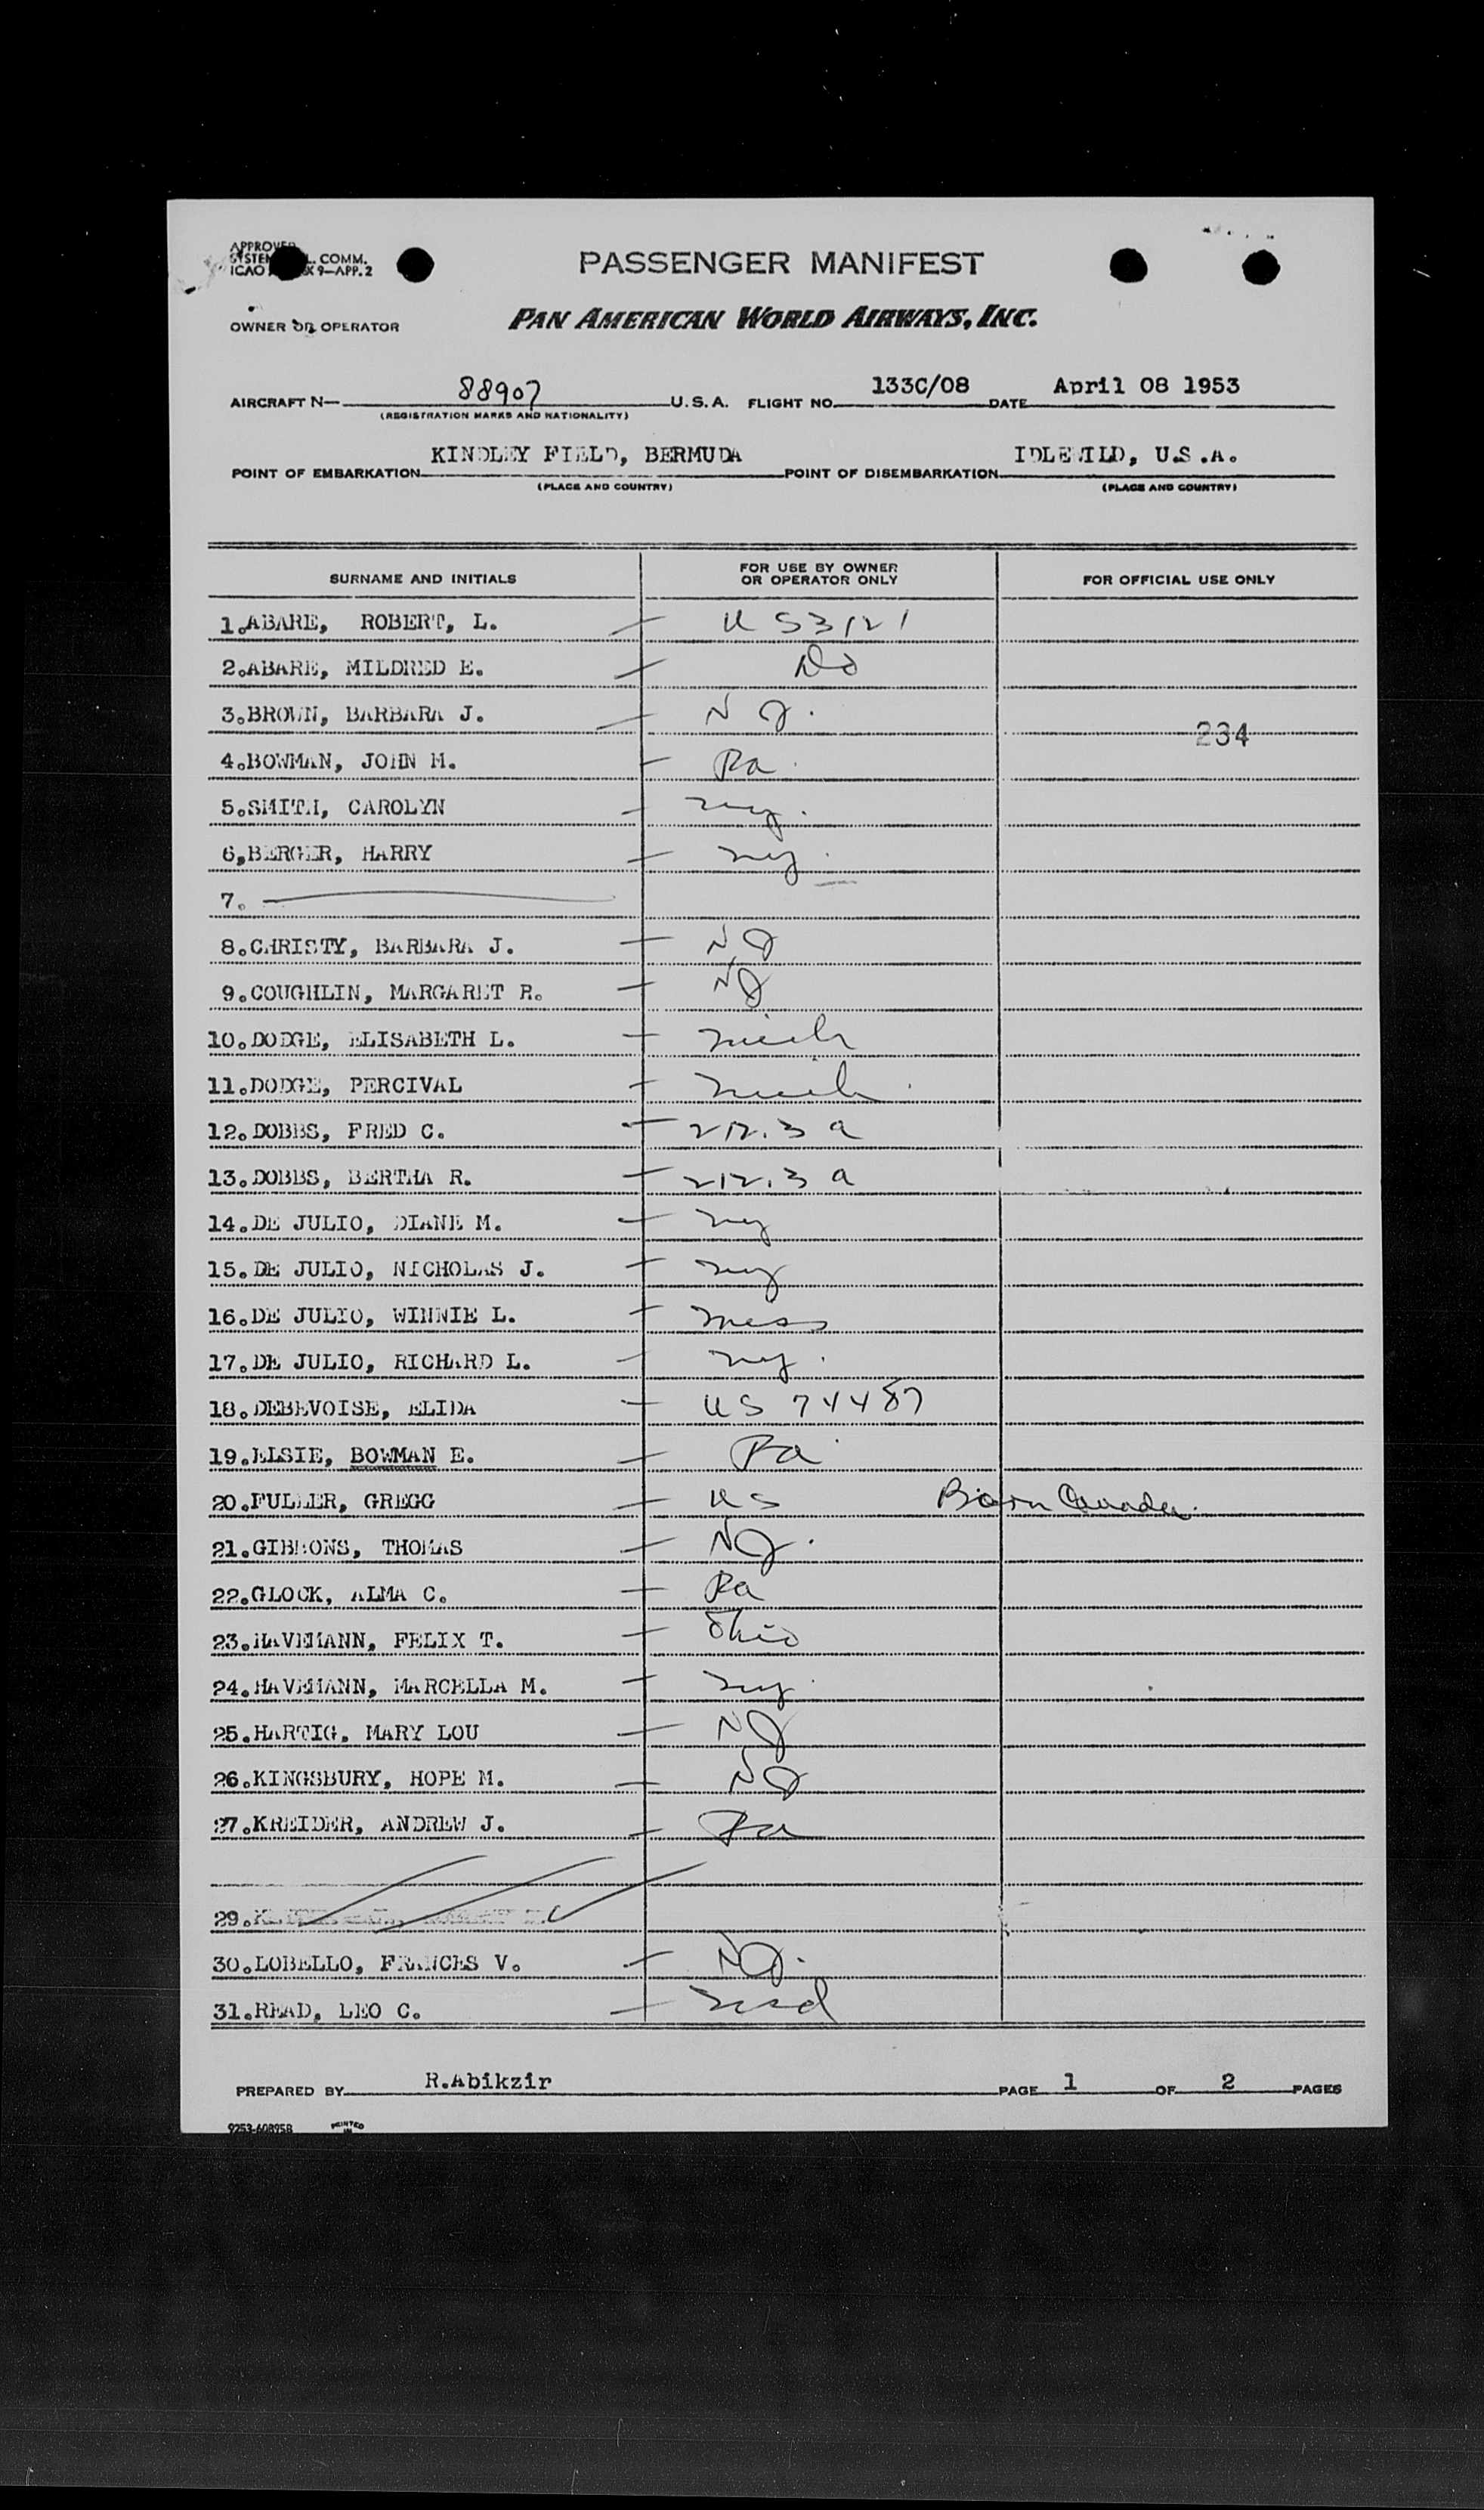 APPROVED
SYSTEM L. COMM.
ICAO X 9—APP. 2
PASSENGER MANIFEST
OWNER OR OPERATOR PAN AMERICAN WORLD AIRWAYS, INC.
AIRCRAFT N— 88907 U.S.A. FLIGHT NO. 133C/08 DATE April 08 1953
(REGISTRATION MARKS AND NATIONALITY)
POINT OF EMBARKATION KINDLEY FIELD, BERMUDA POINT OF DISEMBARKATION IDLEWILD, U.S.A.
(PLACE AND COUNTRY) (PLACE AND COUNTRY)
SURNAME AND INITIALS FOR USE BY OWNER OR OPERATOR ONLY FOR OFFICIAL USE ONLY
1.ABARE, ROBERT, L. — US3121
2.ABARE, MILDRED E. — Do
3.BROWN, BARBARA J. — NJ.
234
4.BOWMAN, JOHN M. — Pa.
5.SMITH, CAROLYN — ny.
6,BERGER, HARRY — ny.
7. —
8.CHRISTY, BARBARA J. — NJ
9.COUGHLIN, MARGARET R. — NJ
10.DODGE, ELISABETH L. — Mich
11.DODGE, PERCIVAL — Mich.
12.DOBBS, FRED C. — 212.3 a
13.DOBBS, BERTHA R. — 212.3 a
14.DE JULIO, DIANE M. — ny
15.DE JULIO, NICHOLAS J. — ny
16.DE JULIO, WINNIE L. — Mess
17.DE JULIO, RICHARD L. — ny.
18.DEBEVOISE, ELIDA — US 74487
19.ELSIE, BOWMAN E. — Pa
20.FULLER, GREGG — US Born Canada.
21.GIBBONS, THOMAS — NJ.
22.GLOCK, ALMA C. — Pa
23.HAVEMANN, FELIX T. — Ohio
24.HAVEMANN, MARCELLA M. — ny.
25.HARTIG, MARY LOU — NJ
26.KINGSBURY, HOPE M. — NJ
27.KREIDER, ANDREW J. — Pa
29.
30.LOBELLO, FRANCES V. — NJ.
31.READ, LEO C. —
PREPARED BY R.Abikzir PAGE 1 OF 2 PAGES
9253-608958 PRINTED IN